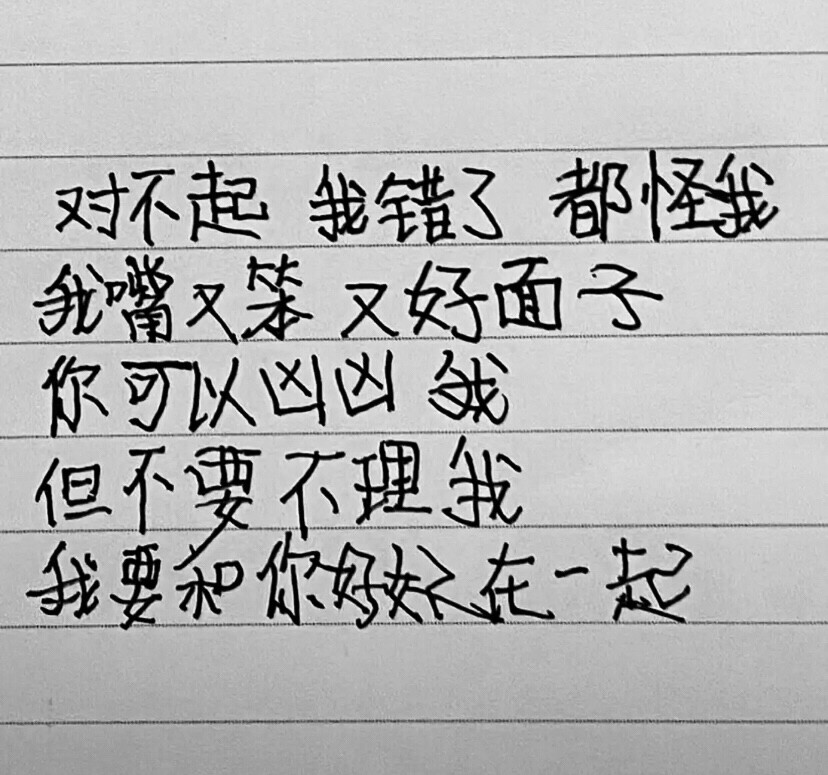 对不起 我错了 都怪我
我嘴又笨 又好面子
你可以凶凶 我
但不要不理我
我要和你好好在一起